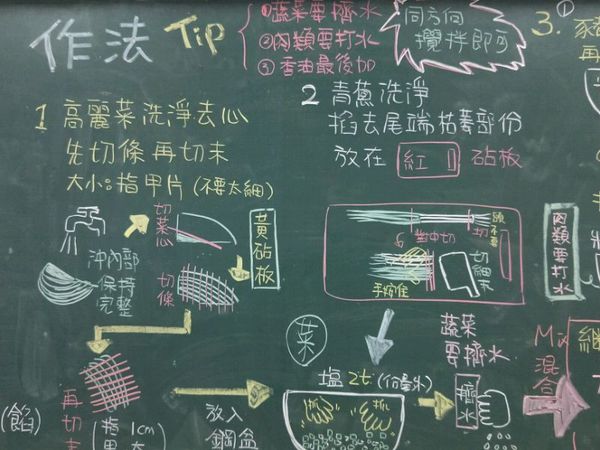 作法 Tip
①蔬菜要擠水
②肉類要打水
③香油最後加
同方向
攪拌即可
3. ①
再
1 高麗菜洗淨去心
先切條再切末
大小:指甲片(不要太細)
切菜心
沖內部
保持
完整
切條
黃砧板
2 青蔥洗淨
掐去尾端枯萎部份
放在 紅 砧板
對中切
切
頭不要
切細末
手按住
肉類要打水
菜
塩 2t
蔬菜
要擠水
擠水
Mix
混合
繼
(餡)
再切末
(指甲
1cm
大
放入
鋼盆